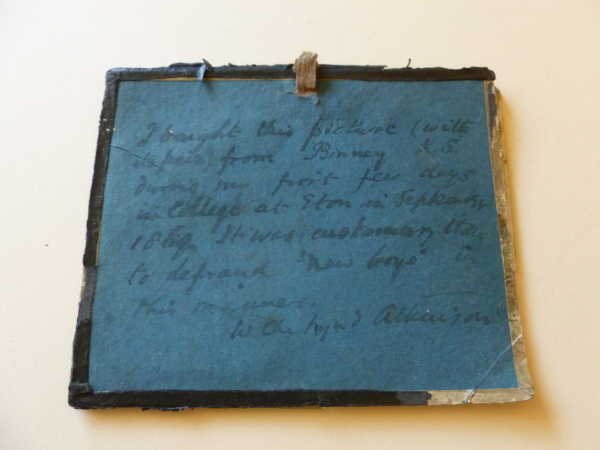 I bought this picture (with
its pair) from Binney K.S.
during my first few days
in College at Eton in September
It was customary
to defraud "new boys" in
this manner.
Atkinson